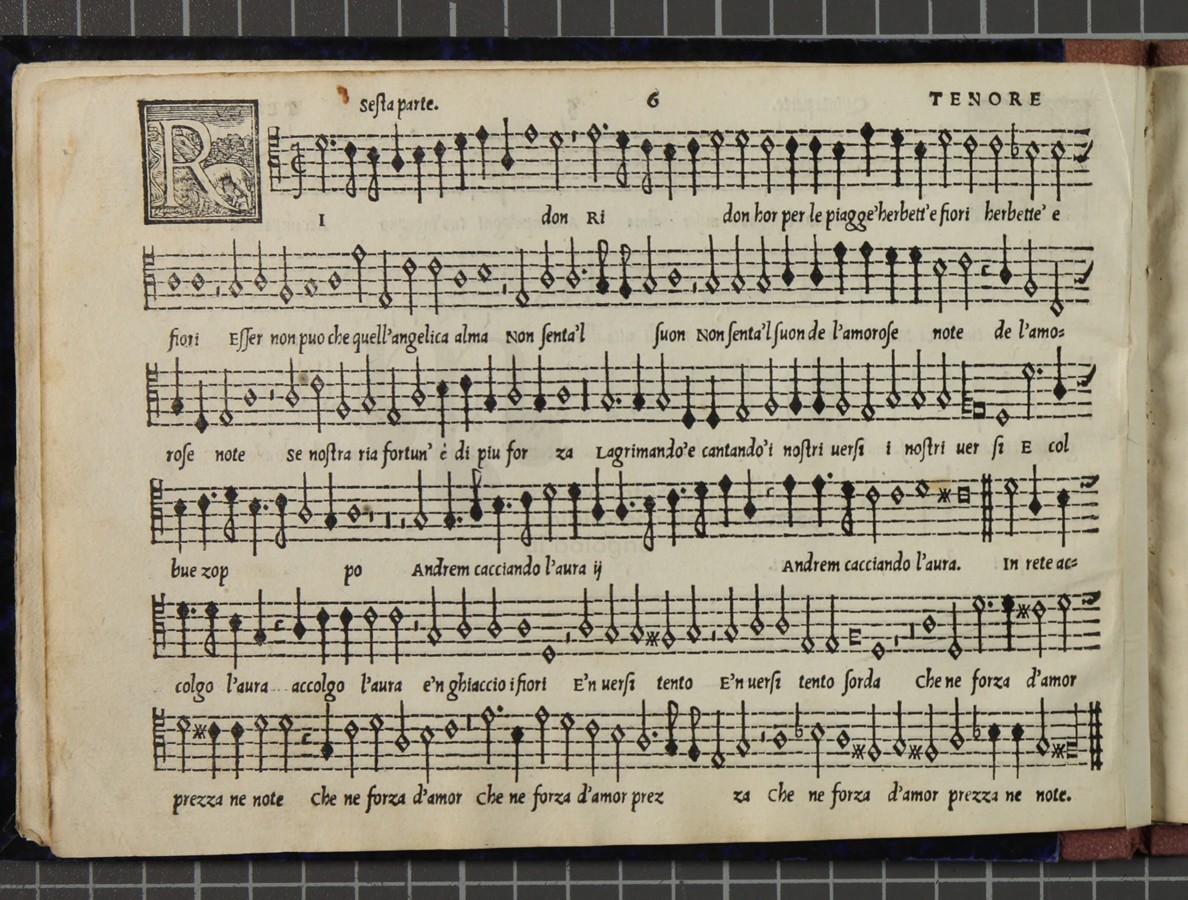 Sesta parte. 6 TENORE
R
I don Ri don hor per le piagge'herbett'e fiori herbette' e
fiori Esser non puo che quell'angelica alma Non senta'l suon Non senta'l suon de l'amorose note de l'amo=
rose note Se nostra ria fortun' è di piu for za Lagrimando'e cantando'i nostri uersi i nostri uer si E col
bue zop po Andrem cacciando l'aura ij Andrem cacciando l'aura. In rete ac=
colgo l'aura accolgo l'aura e'n ghiaccio i fiori E'n uersi tento E'n uersi tento sorda Che ne forza d'amor
prezza ne note Che ne forza d'amor Che ne forza d'amor prez za Che ne forza d'amor prezza ne note.